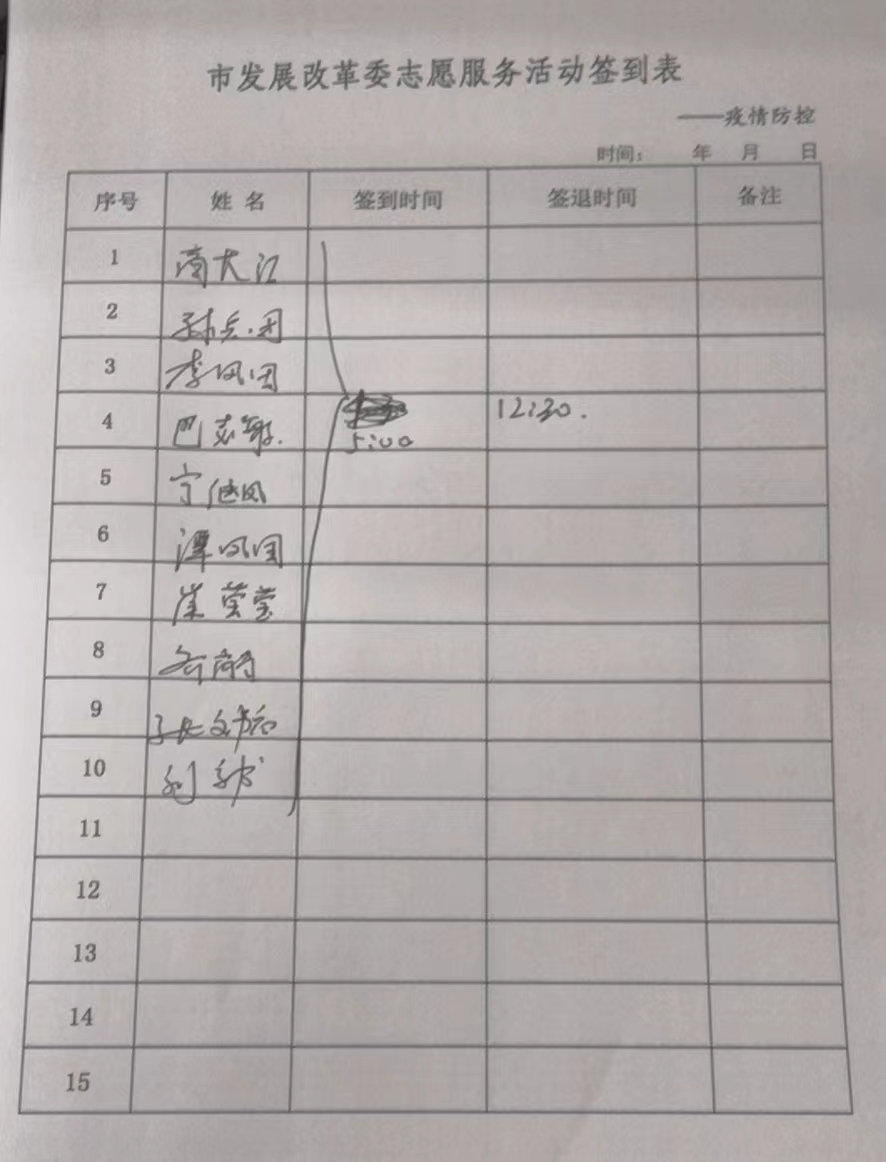 市发展改革委志愿服务活动签到表
——疫情防控
时间： 年 月 日
序号 姓名 签到时间 签退时间 备注
1 大江
2 孙兵团
3 李凤团
4 巴志敏. 5:00 12:30.
5 宁继凤
6 潭凤国
7 崔莹莹
8
9 张文
10 刘
11
12
13
14
15